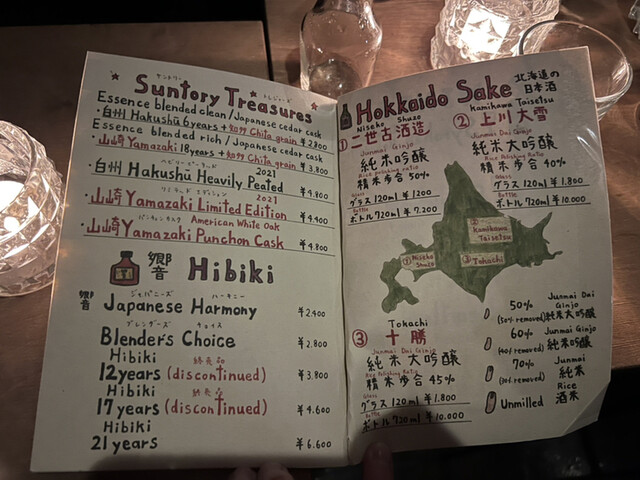 サントリー トレジャーズ
Suntory Treasures
Essence blended clean/Japanese cedar cask
・白州 Hakushū 6years + 知多 Chita grain ¥2800
Essence blended rich / Japanese cedar cask
・山崎 Yamazaki 18years + 知多 Chita grain ¥3.800
ヘビーリーピーテッド 2021
・白州 Hakushū Heavily Peated ¥4.800
リミテッド エディション 2021
・山崎 Yamazaki Limited Edition ¥4.400
パンチョンカスク American White Oak
・山崎 Yamazaki Punchon Cask ¥4.800
響 Hibiki
ジャパニーズ ハーモニー
響 Japanese Harmony ¥2.400
ブレンダーズ チョイス
Blender's Choice ¥2.800
Hibiki 終売品
12years (discontinued) ¥3.800
Hibiki 終売品
17years (discontinued) ¥4.600
Hibiki
21years ¥6.600
Hokkaido Sake 北海道の日本酒
Niseko Shuzo
① 二世古酒造
Junmai Ginjo
純米吟醸
Rice Polishing Ratio
精米歩合 50%
Glass
グラス 120ml ¥1200
Bottle
ボトル 720ml ¥7.200
Kamikawa Taisetsu
② 上川大雪
Junmai Dai Ginjo
純米大吟醸
Rice Polishing Ratio
精米歩合 40%
Glass
グラス 120ml ¥1.800
Bottle
ボトル 720ml ¥10.000
② Kamikawa Taisetsu
① Niseko Shuzo
③ Tokachi
Tokachi
③ 十勝
Junmai Dai Ginjo
純米大吟醸
Rice Polishing Ratio
精米歩合 45%
Glass
グラス 120ml ¥1.800
Bottle
ボトル 720ml ¥10.000
50% Junmai Dai Ginjo
(50% removed) 純米大吟醸
60% Junmai Ginjo
(40% removed) 純米吟醸
70% Junmai
(30% removed) 純米
Unmilled Rice
酒米